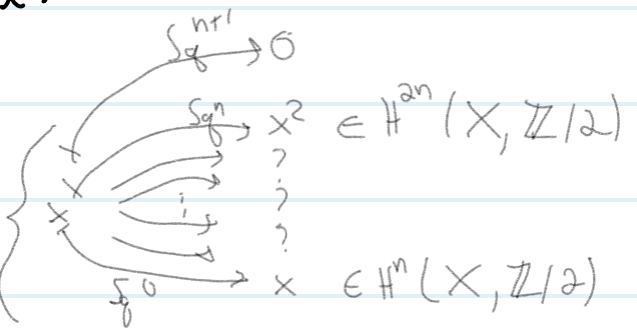 Sq^{n+1} → 0
Sq^n → x^2 ∈ H^{2n}(X, ℤ/2)
?
?
x
?
Sq^0 → x ∈ H^n(X, ℤ/2)